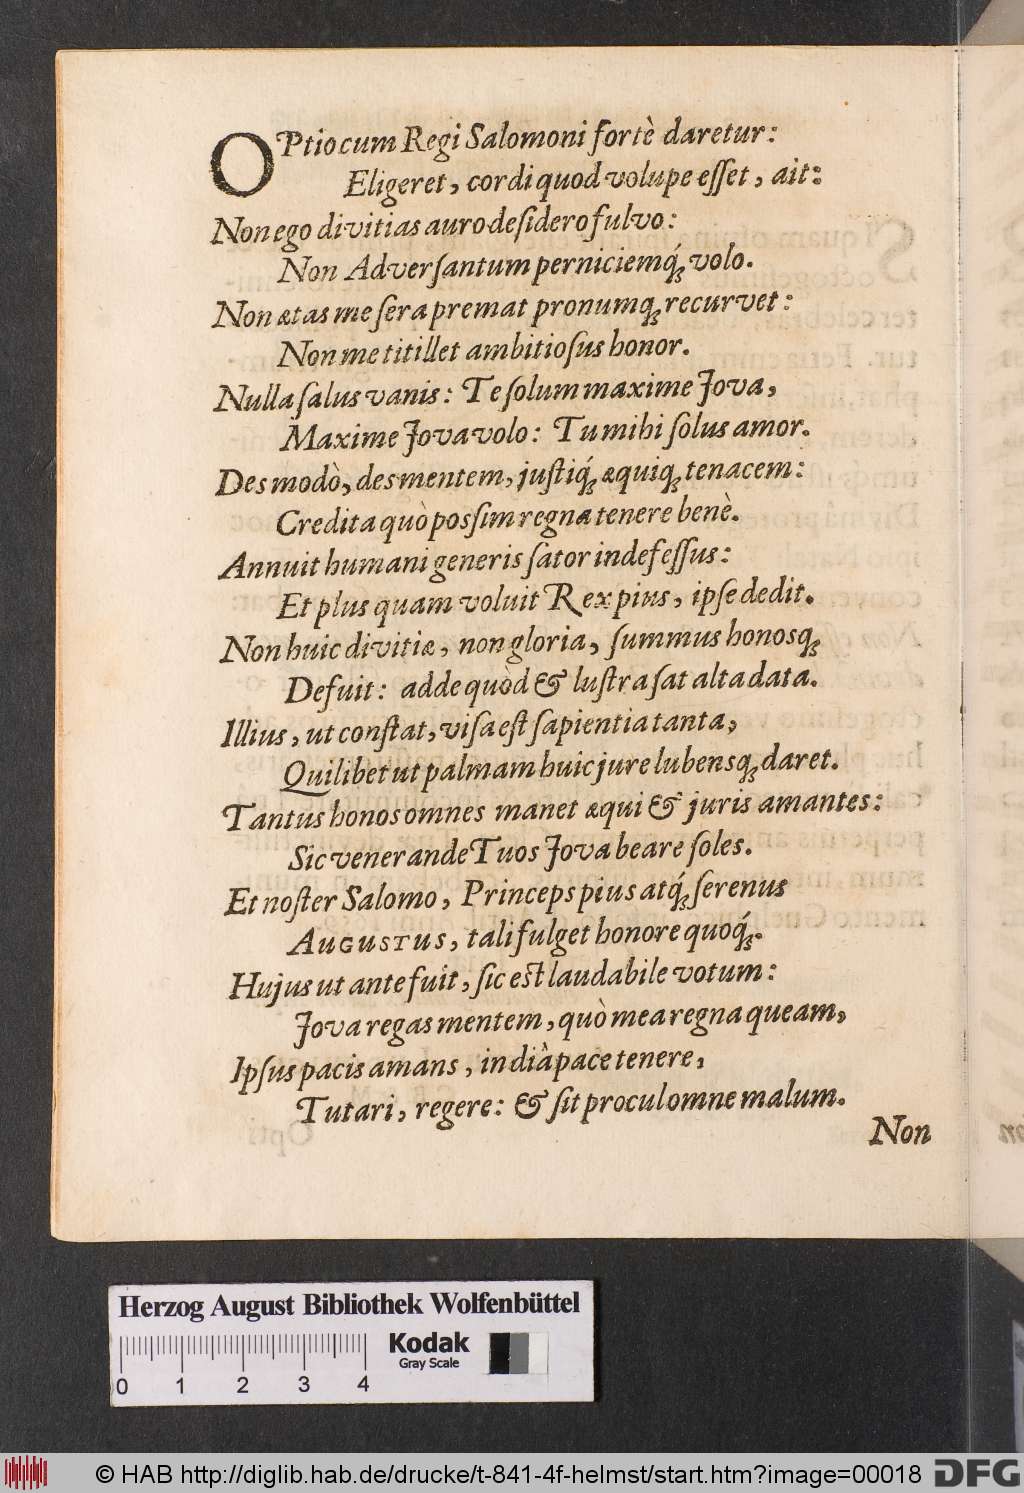 OPtio cum Regi Salomoni fortè daretur:
Eligeret, cordi quod volupe esset, ait:
Non ego divitias auro desidero fulvo:
Non Adversantum perniciemq́; volo.
Non ætas me sera premat pronumq; recurvet:
Non me titillet ambitiosus honor.
Nulla salus vanis: Te solum maxime Jova,
Maxime Jova volo: Tu mihi solus amor.
Des modò, des mentem, justiq́; æquiq; tenacem:
Credita quò possim regna tenere benè.
Annuit humani generis sator indefessus:
Et plus quam voluit Rex pius, ipse dedit.
Non huic divitiæ, non gloria, summus honosq;
Defuit: adde quòd & lustra sat alta data.
Illius, ut constat, visa est sapientia tanta,
Quilibet ut palmam huic jure lubensq; daret.
Tantus honos omnes manet æqui & juris amantes:
Sic venerande Tuos Jova beare soles.
Et noster Salomo, Princeps pius atq́; serenus
AUGUSTUS, tali fulget honore quoq́;.
Hujus ut ante fuit, sic est laudabile votum:
Jova regas mentem, quò mea regna queam,
Ipsus pacis amans, in diâ pace tenere,
Tutari, regere: & sit procul omne malum.
Non
Herzog August Bibliothek Wolfenbüttel
Kodak
Gray Scale
0 1 2 3 4
© HAB http://diglib.hab.de/drucke/t-841-4f-helmst/start.htm?image=00018
DFG